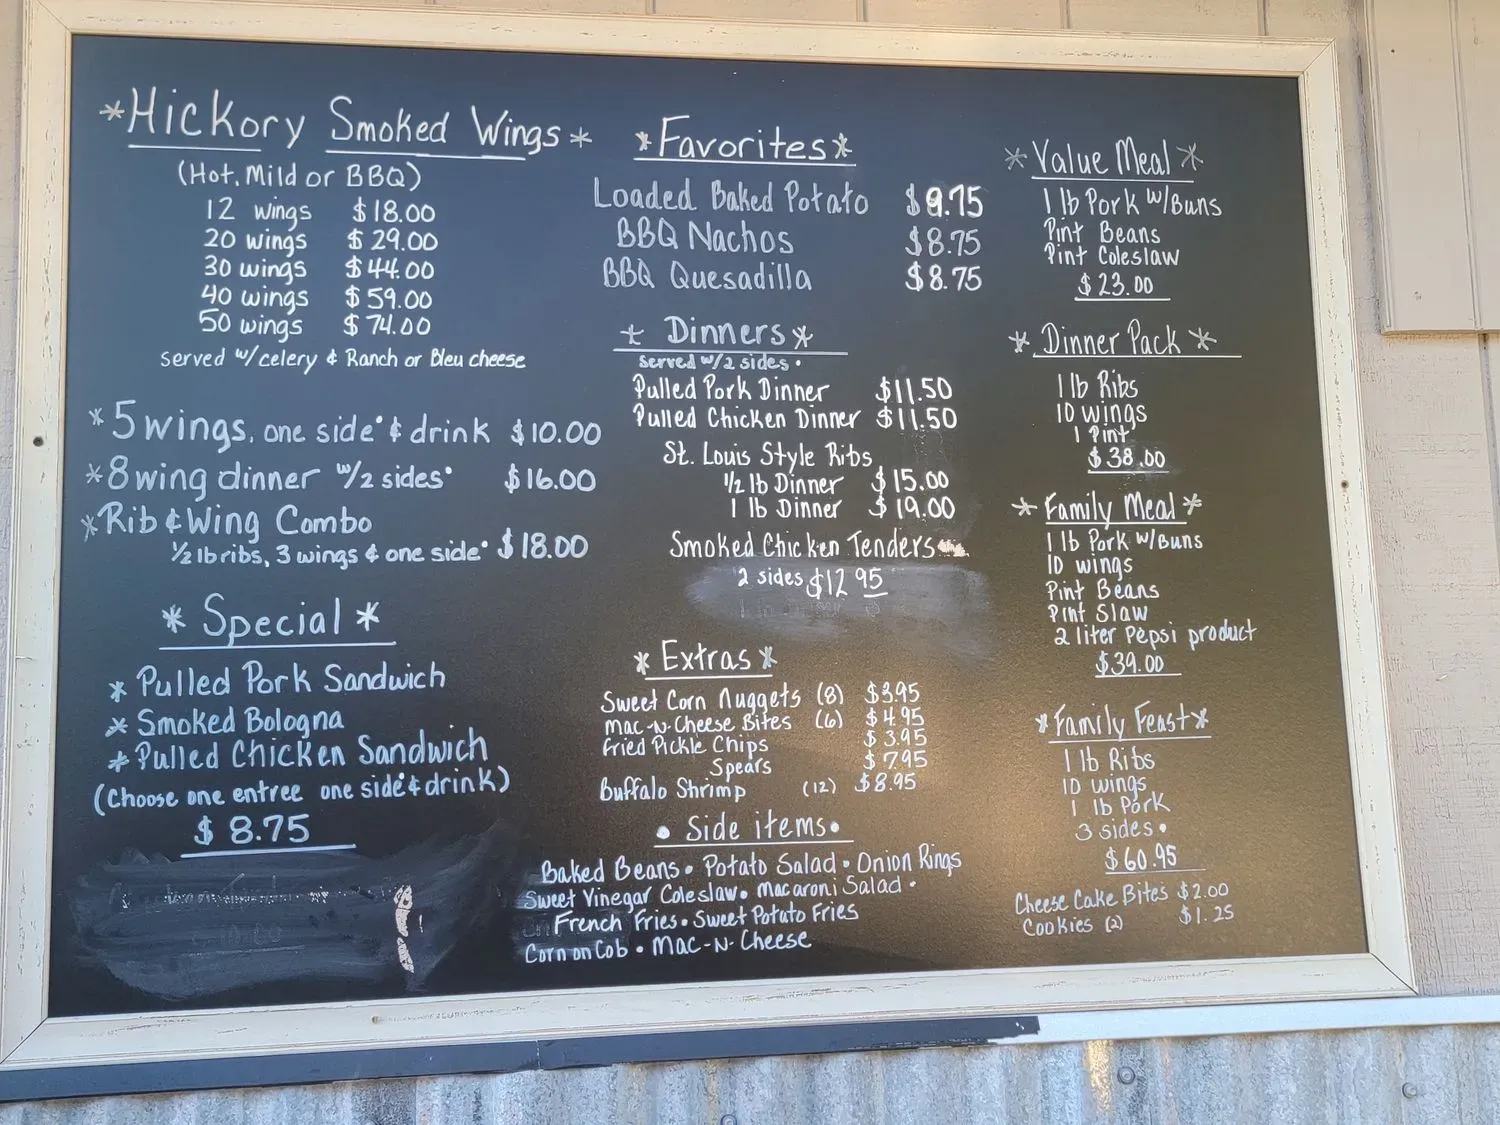 *Hickory Smoked Wings*
(Hot, Mild or BBQ)
12 wings $18.00
20 wings $29.00
30 wings $44.00
40 wings $59.00
50 wings $74.00
served w/celery & Ranch or Bleu cheese
*5 wings, one side• & drink $10.00
*8 wing dinner w/2 sides• $16.00
*Rib & Wing Combo
1/2 lb ribs, 3 wings & one side• $18.00
* Special *
* Pulled Pork Sandwich
* Smoked Bologna
* Pulled Chicken Sandwich
(Choose one entree one side• & drink)
$8.75
*Favorites*
Loaded Baked Potato $9.75
BBQ Nachos $8.75
BBQ Quesadilla $8.75
* Dinners *
served w/2 sides•
Pulled Pork Dinner $11.50
Pulled Chicken Dinner $11.50
St. Louis Style Ribs
1/2 lb Dinner $15.00
1 lb Dinner $19.00
Smoked Chicken Tenders
2 sides $12.95
* Extras *
Sweet Corn Nuggets (8) $3.95
Mac-N-Cheese Bites (6) $4.95
Fried Pickle Chips $3.95
Spears $7.95
Buffalo Shrimp (12) $8.95
• Side items •
Baked Beans • Potato Salad • Onion Rings
Sweet Vinegar Coleslaw • Macaroni Salad •
French Fries • Sweet Potato Fries
Corn on Cob • Mac-N-Cheese
* Value Meal *
1 lb Pork w/Buns
Pint Beans
Pint Coleslaw
$23.00
* Dinner Pack *
1 lb Ribs
10 wings
1 Pint
$38.00
* Family Meal *
1 lb Pork w/Buns
10 wings
Pint Beans
Pint Slaw
2 liter Pepsi product
$39.00
*Family Feast*
1 lb Ribs
10 wings
1 lb Pork
3 sides •
$60.95
Cheese Cake Bites $2.00
Cookies (2) $1.25